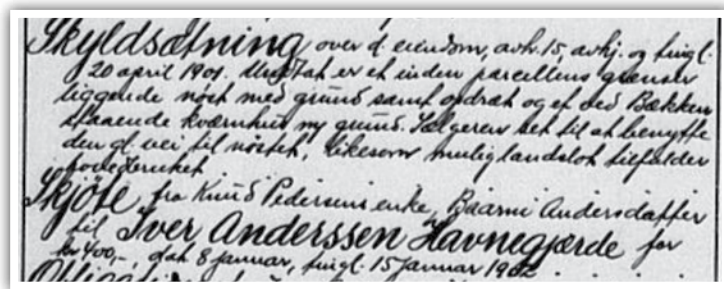 Skyldsætning over d. eiendom, avh. 15, avhj. og tingl.
20 april 1901. Undtat er et inden parcellens grænser
liggende nöst med grund samt opdræt og et ved Bækken
staaende kværnhus m/ grund. Sælgeren ret til at benytte
den d. vei til nöstet, likesom mulig landslot tilfalder
hovedbruket
Skjöte fra Knud Pedersens enke, Baarni Andersdatter
til Iver Anderssen Havnegjærde for
kr 400,-, dat 8 januar, tingl. 15 januar 1902